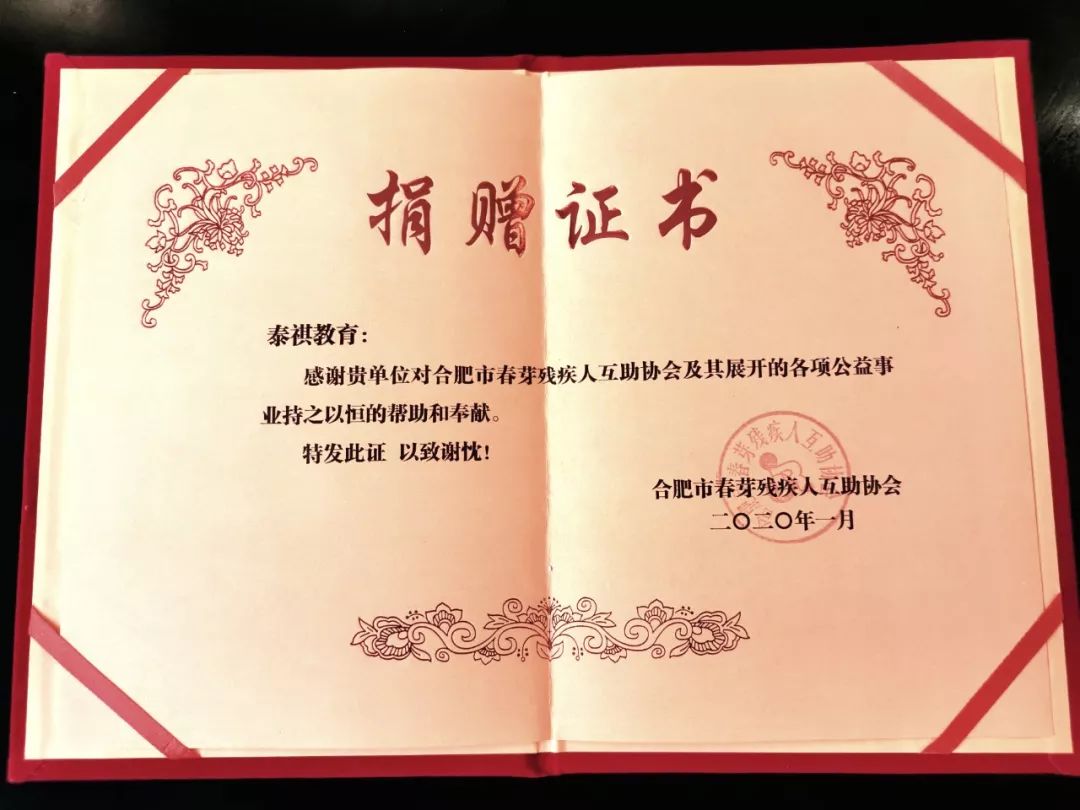 捐赠证书
泰祺教育：
感谢贵单位对合肥市春芽残疾人互助协会及其展开的各项公益事
业持之以恒的帮助和奉献。
特发此证 以致谢忱！
合肥市春芽残疾人互助协会
二〇二〇年一月
春芽残疾人互助协会